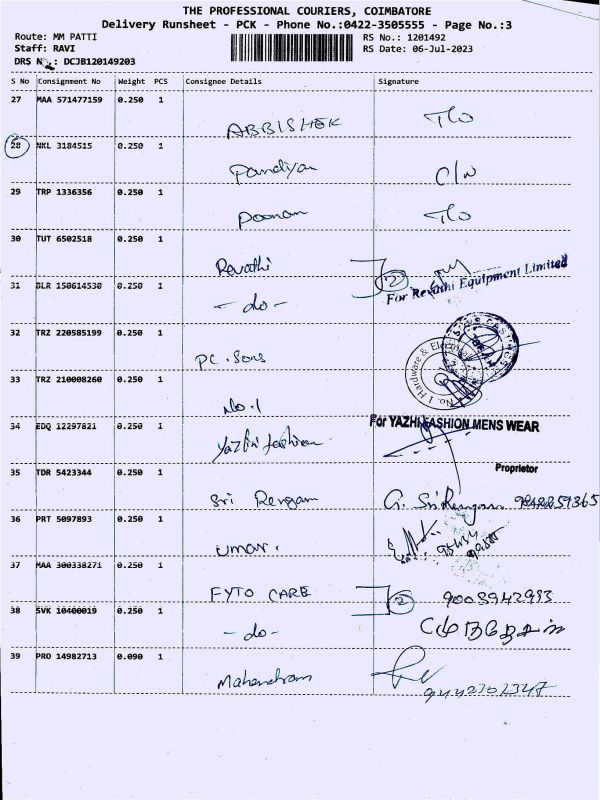 THE PROFESSIONAL COURIERS, COIMBATORE
Delivery Runsheet - PCK - Phone No.:0422-3505555 - Page No.:3
Route: MM PATTI
RS No.: 1201492
Staff: RAVI
RS Date: 06-Jul-2023
DRS No.: DCJB120149203
S No Consignment No Weight PCS Consignee Details Signature
27 MAA 571477159 0.250 1
ABBISHEK T/o
28 NKL 3184515 0.250 1
Pandiyan C/N
29 TRP 1336356 0.250 1
Poonam T/o
30 TUT 6502518 0.250 1
Revathi 2
For Revathi Equipment Limited
31 BLR 150614530 0.250 1
- do -
32 TRZ 220585199 0.250 1
PC. Sons
33 TRZ 210008260 0.250 1
No. 1 Hardware &
No. 1
34 EDQ 12297821 0.250 1
For YAZHI FASHION MENS WEAR
Yazhi fashion
Proprietor
35 TDR 5423344 0.250 1
Sri Rengam G. Sri Rengam
36 PRT 5097893 0.250 1
Umar.
37 MAA 300338271 0.250 1
FYTO CARE 2 9003942993
38 SVK 10400019 0.250 1
- do -
39 PRO 14982713 0.090 1
Mahendram
9442302347